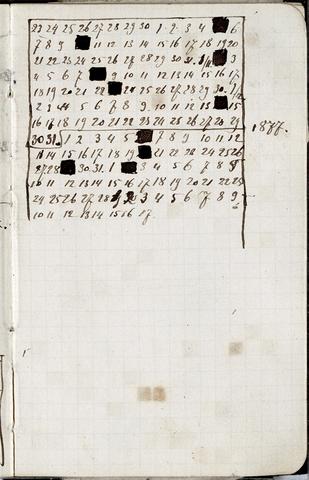 23 24 25 26 27 28 29 30 1 2 3 4 6
7 8 9 11 12 13 14 15 16 17 18 19 20
21 22 23 24 25 26 27 28 29 30 31. 1/11 3
4 5 6 7 9 10 11 12 13 14 15 16 17
18 19 20 21 22 24 25 26 27 28 29 30. 1/12
2 3 4 5 6 7 8 9 10 11 12 13 15
16 17 18 19 20 21 22 23 24 25 26 27 28 29
30 31. 1 2 3 4 5 7 8 9 10 11 12
1877.
13 14 15 16 17 18 19 21 22 23 24 25 26
27 28 30 31. 1 3 4 5 6 7 8 9
10 11 12 13 14 15 16 17 18 19 20 21 22 23
24 25 26 27 28 2 3 4 5 6 7 8 9
10 11 12 13 14 15 16 17.